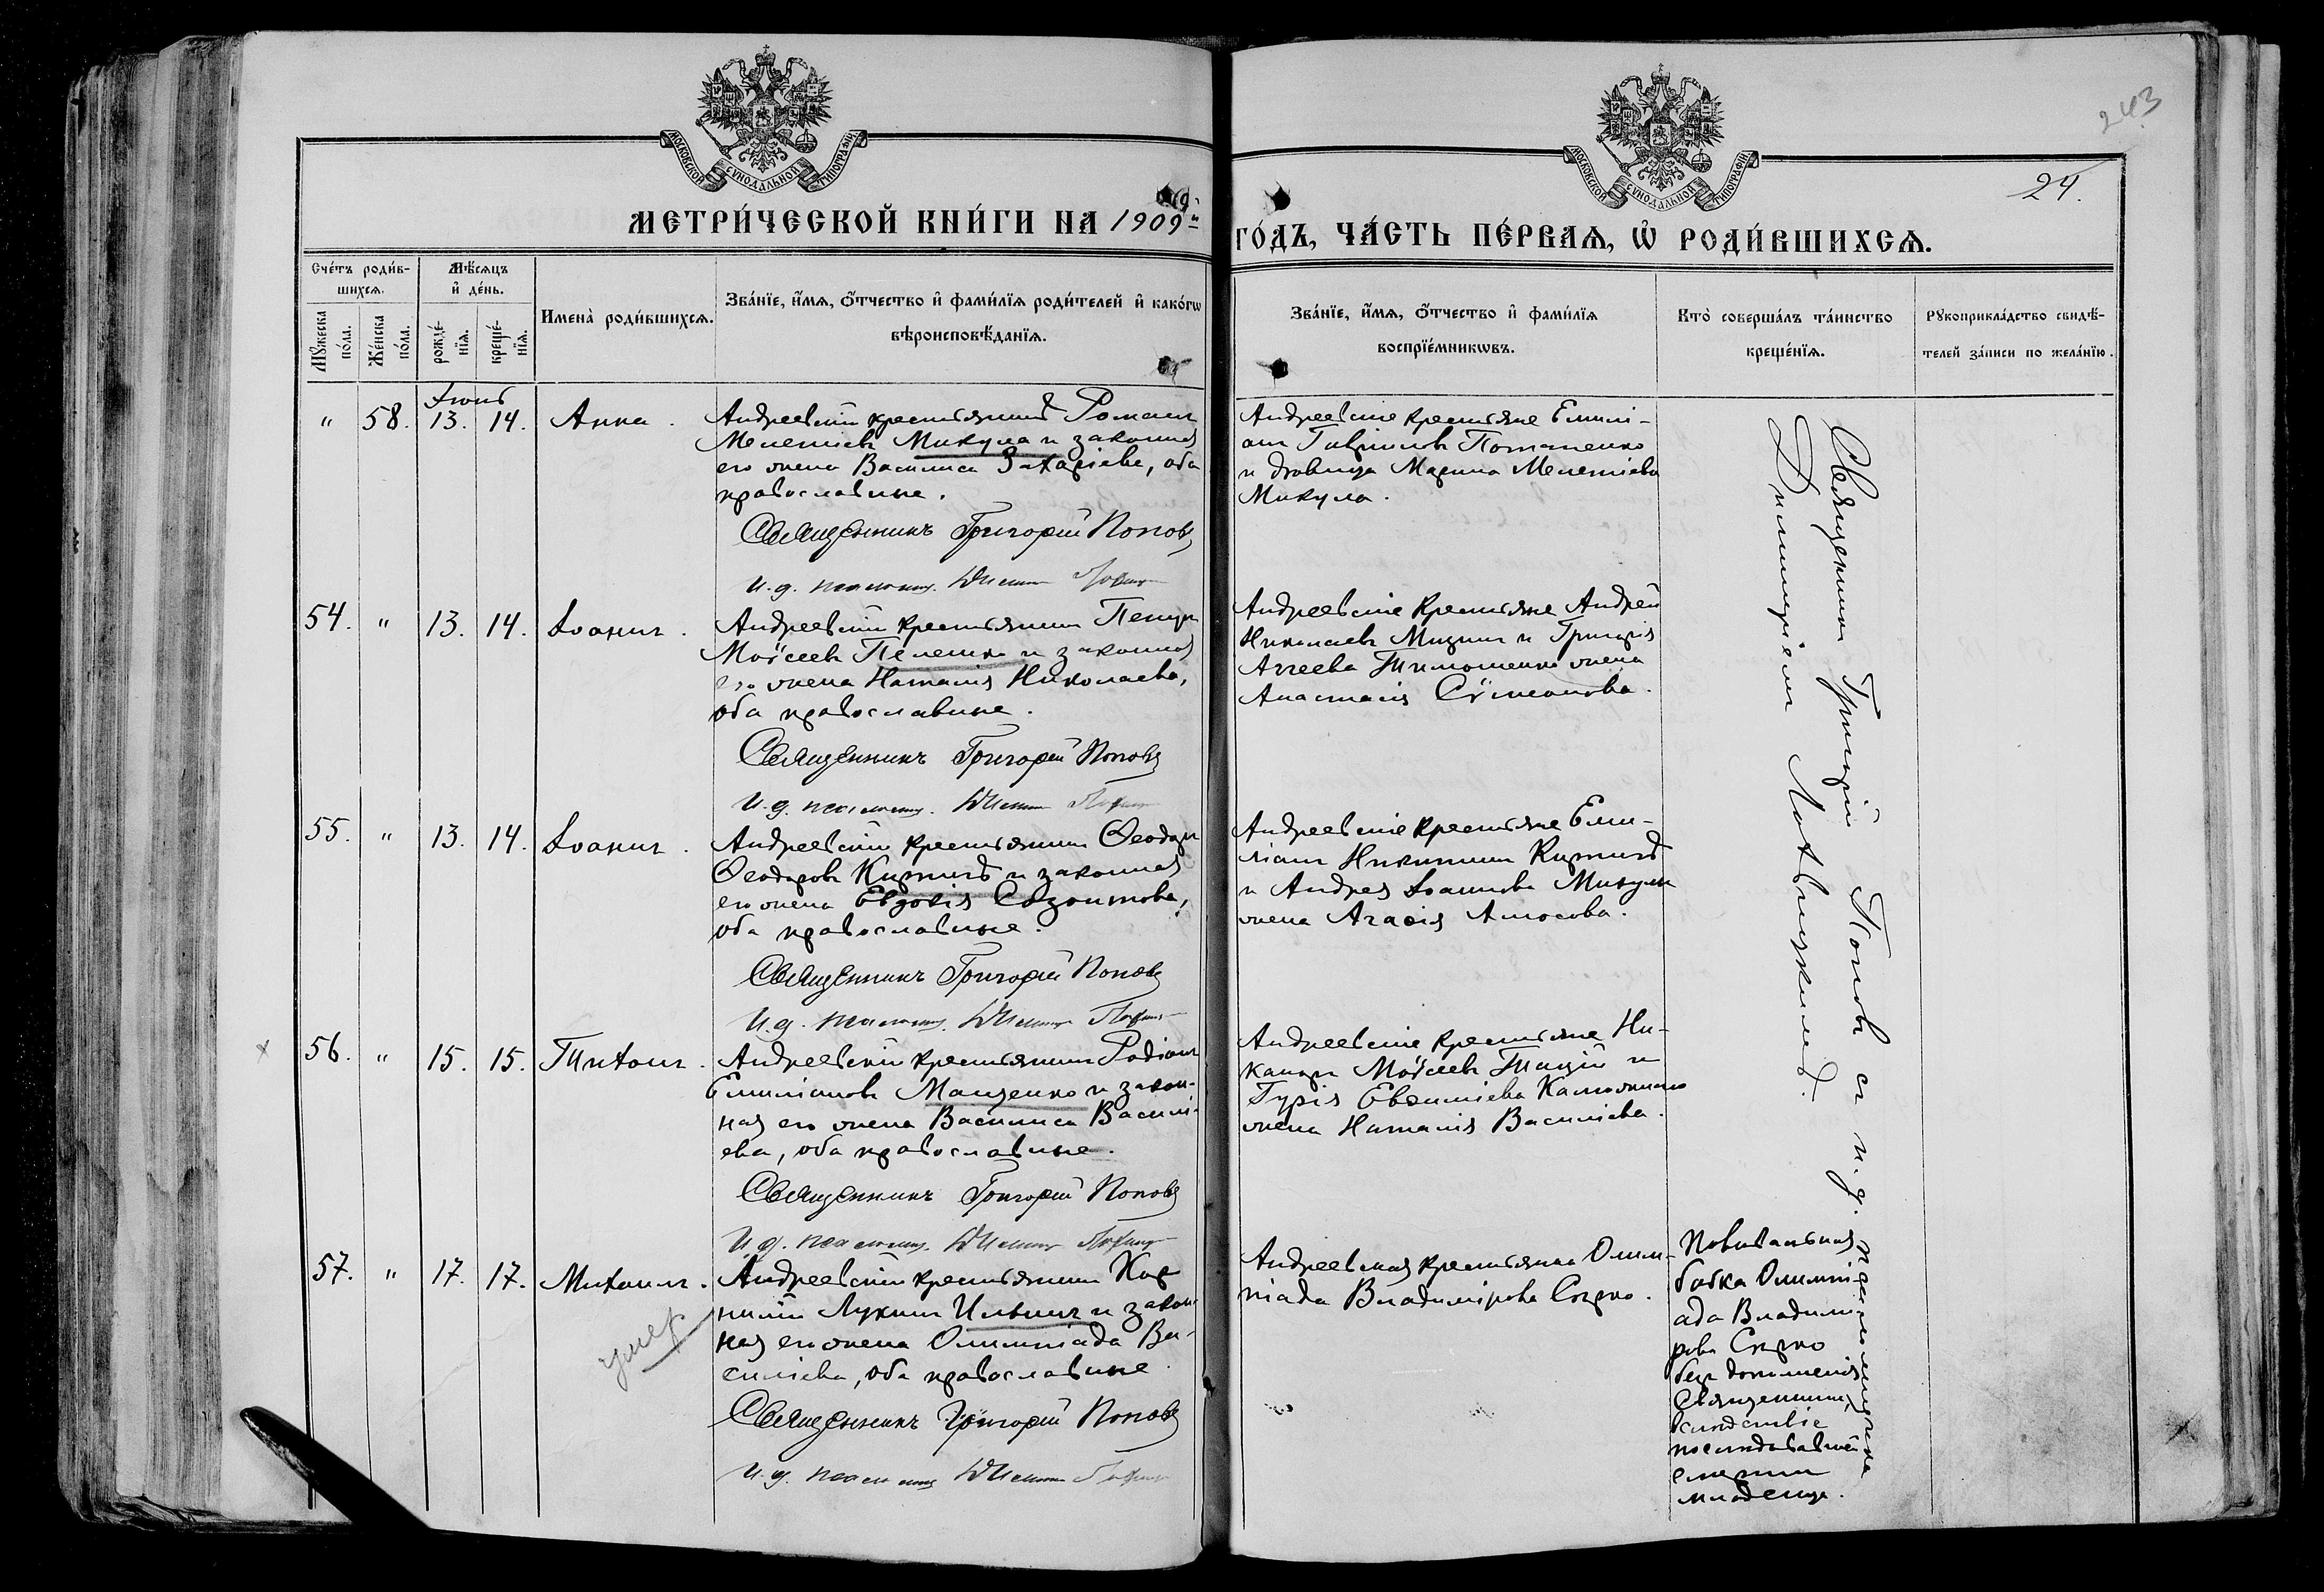 243
24.
МОСКОВСКОЙ СѴНОДАЛЬНОЙ ТИПОГРАФІИ
МОСКОВСКОЙ СѴНОДАЛЬНОЙ ТИПОГРАФІИ
МЕТРИ́ЧЕСКОЙ КНИ́ГИ НА 1909й
ГО́ДЪ, ЧА́СТЬ ПЕ́РВАѦ, Ѡ҆ РОДИ́ВШИХСѦ.
Сче́тъ роди́в-
шихсѧ.
Мꙋ́жеска по́ла.
Же́нска по́ла.
Мѣ́сѧцъ
и҆ де́нь.
рожде́-
нїѧ.
креще́-
нїѧ.
Имена̀ роди́вшихсѧ.
Зва́нїе, и҆́мѧ, ѻ҆́тчество и҆ фами́лїѧ роди́телей и҆ како́гѡ
вѣроисповѣ́данїѧ.
Зва́нїе, и҆́мѧ, ѻ҆́тчество и҆ фами́лїѧ
воспрїе́мникѡвъ.
Кто̀ соверша́лъ та́инство
креще́нїѧ.
Рꙋкоприкла́дство свидѣ́-
телей за́писи по жела́нїю.
Іюнь
" 58. 13. 14. Анна.
Андреевскій крестьянинъ Романъ
Мелетіевъ Микула и законная
его жена Василиса Захаріева, оба
православные.
Священникъ Григорій Поповъ
И. д. псаломщ.
Андреевские крестьяне Емилі-
анъ Гавриловъ Потапенко
и дѣвица Марина Мелетіева
Микула.
54. " 13. 14. Іоаннъ.
Андреевскій крестьянинъ Петръ
Моѵсеевъ Пелешко и законная
его жена Наталія Николаева,
оба православные.
Священникъ Григорій Поповъ
И. д. псаломщ.
Андреевскіе крестьяне Андрей
Николаевъ и Григорія
Аггеева Тимошенко жена
Анастасія Сѵмеонова.
55. " 13. 14. Іоаннъ.
Андреевскій крестьянинъ Ѳеодоръ
Ѳеодоровъ и законная
его жена Евдокія Созонтова,
оба православные.
Священникъ Григорій Поповъ
И. д. псаломщ.
Андреевскіе крестьяне Еми-
ліанъ Никитинъ
и Андрея Іоаннова Микулы
жена Агаѳія Амосова.
56. " 15. 15. Тихонъ.
Андреевскій крестьянинъ Родіонъ
Емиліановъ Мащенко и закон-
ная его жена Василиса Васили-
ева, оба православные.
Священникъ Григорій Поповъ
И. д. псаломщ.
Андреевскіе крестьяне Ни-
каноръ Моѵсеевъ и
Гурія Евѳиміева
жена Наталія Василіева.
57. " 17. 17. Михаилъ.
умеръ
Андреевскій крестьянинъ Кор-
нилій Лукинъ Ильинъ и закон-
ная его жена Олимпіада Ва-
силіева, оба православные
Священникъ Григорій Поповъ
И. д. псаломщ.
Андреевская крестьянка Олим-
піада Владимірова Сѣрко.
Священникъ Григорій Поповъ съ и. д. псаломщика
Димитріемъ
Повивальная
бабка Олимпі-
ада Владими-
рова Сѣрко
безъ дополненія
священникомъ,
вслѣдствіе
послѣдовавшей
смерти
младенца.